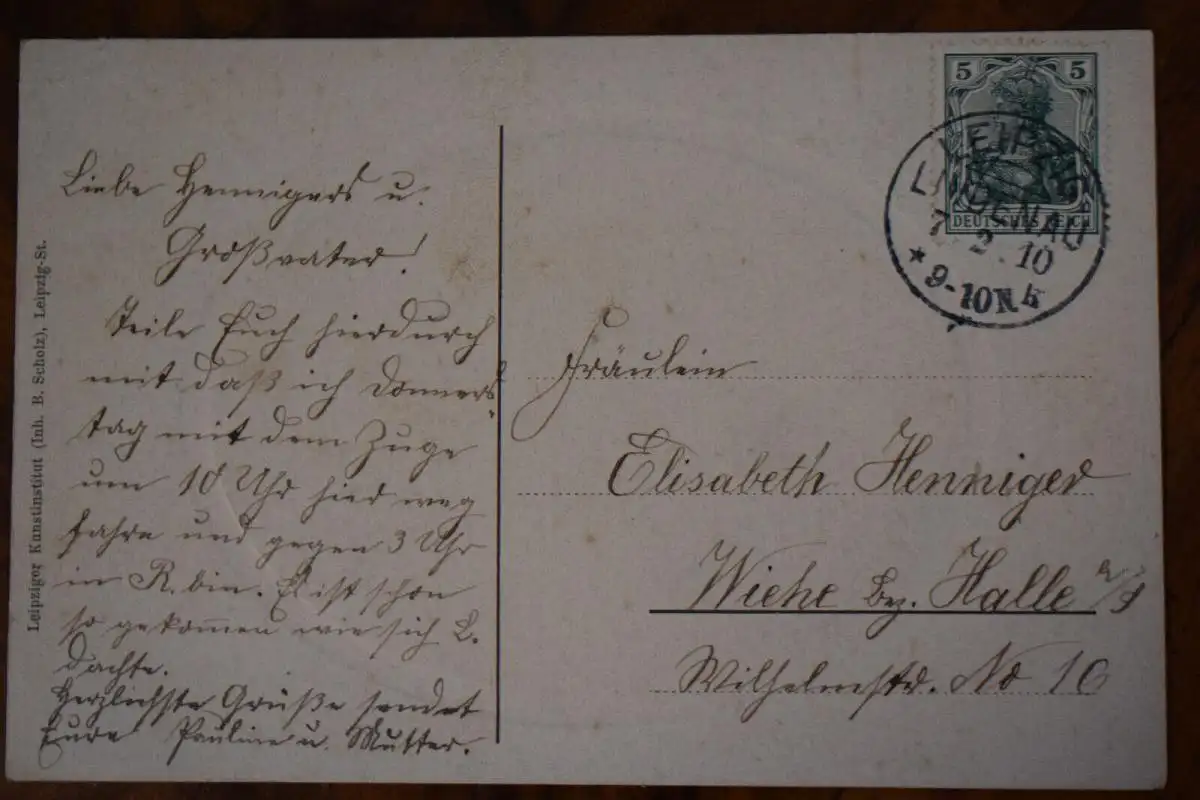 Liebe Hennigers u.
Großvater!
Teile Euch hierdurch
mit daß ich Donners-
tag mit dem Zuge
um 10 Uhr hier weg
fahre und gegen 3 Uhr
in R. bin. Es ist schon
so gekom̄en wie sich L.
dachte.
Herzlichste Grüße sendet
Eure Pauline u. Mutter.
Leipziger Kunstinstitut (Inh. B. Scholz), Leipzig-St.
5 5
DEUTSCHES REICH
LEIPZIG
LINDENAU
7. 2. 10
* 9-10 N. *
Fräulein
Elisabeth Henniger
Wiehe Bez. Halle a/S
Wilhelmstr. No 16